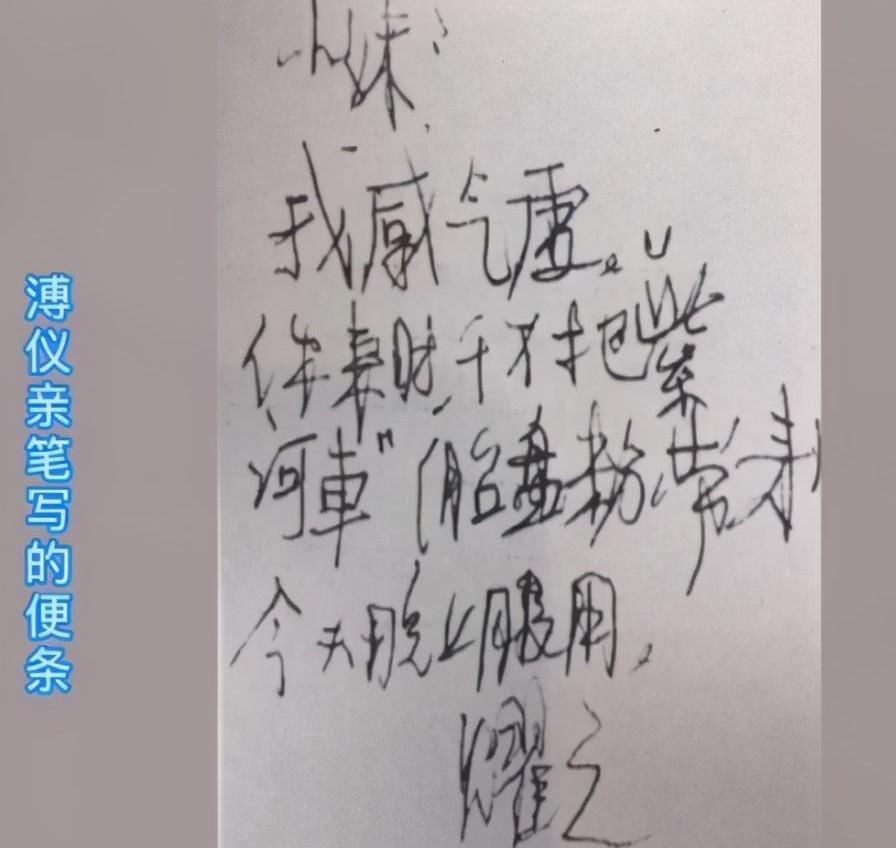 溥仪亲笔写的便条
小妹:
我感气虚。
你来时千万把“紫
河車”(胎盘粉)带来
今天晚上服用,
耀之